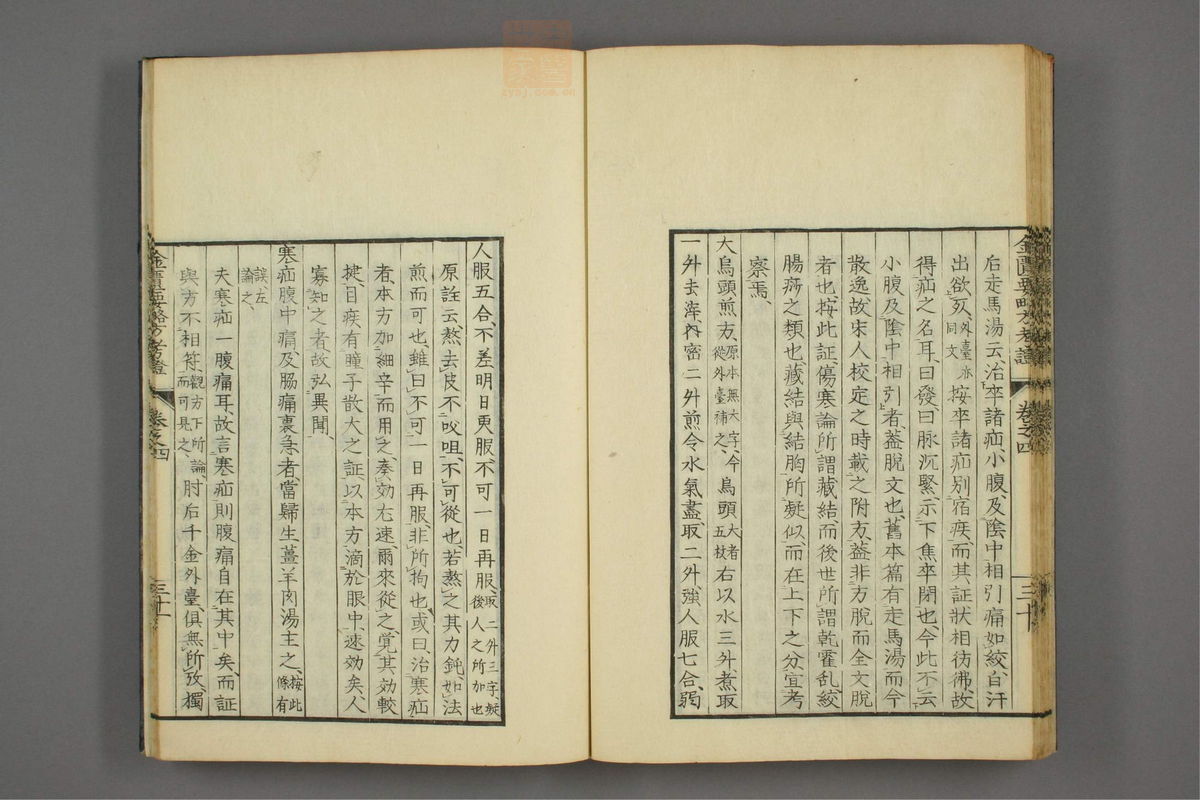 后走馬湯云、治卒諸疝、小腹、及陰中相引痛如絞、白汗
出欲死、外臺亦同文 按卒諸疝別宿疾、而其証狀相彷彿、故
得疝之名耳、曰發、曰脉沉緊、示下焦卒閉也、今此不云
小腹及陰中相引者、蓋脫文也、舊本篇有走馬湯、而今
散逸、故宋人校定之時、載之附方、蓋非方脫而全文脫
者也、按此証傷寒論所謂藏結、而後世所謂乾霍乱絞
腸痧之類也、藏結與結胸所疑似、而在上下之分、宜考
察焉、
大烏頭煎方、原本無大字、今從外臺補之、 烏頭大者五枚 右以水三升、煮取
一升去滓、內密二升煎令水氣盡、取二升、強人服七合、弱
人服五合、不差明日更服、不可一日再服、取二升三字、疑後人之所加也
原詮云、熬、去皮不㕮咀、不可從也、若熬之其力鈍、如法
煎而可也、雖曰不可一日再服、非所拘也、或曰、治寒疝
者、本方加細辛而用之、奏効尤速、爾來從之、覚其効較
捷、目疾有瞳子散大之証、以本方滴於眼中、速効矣、人
寡知之者、故弘異聞、
寒疝腹中痛、及脇痛裏急者、當歸生薑羊肉湯主之、按此條有
誤、左論之、
夫寒疝一腹痛耳、故言寒疝、則腹痛自在其中矣、而証
與方不相符、觀方下所論、而可見之、肘后千金外臺、俱無所攷、獨
金匱要略方考證 卷之四 三十
金匱要略方考證 卷之四 三十一
zybj.com.cn